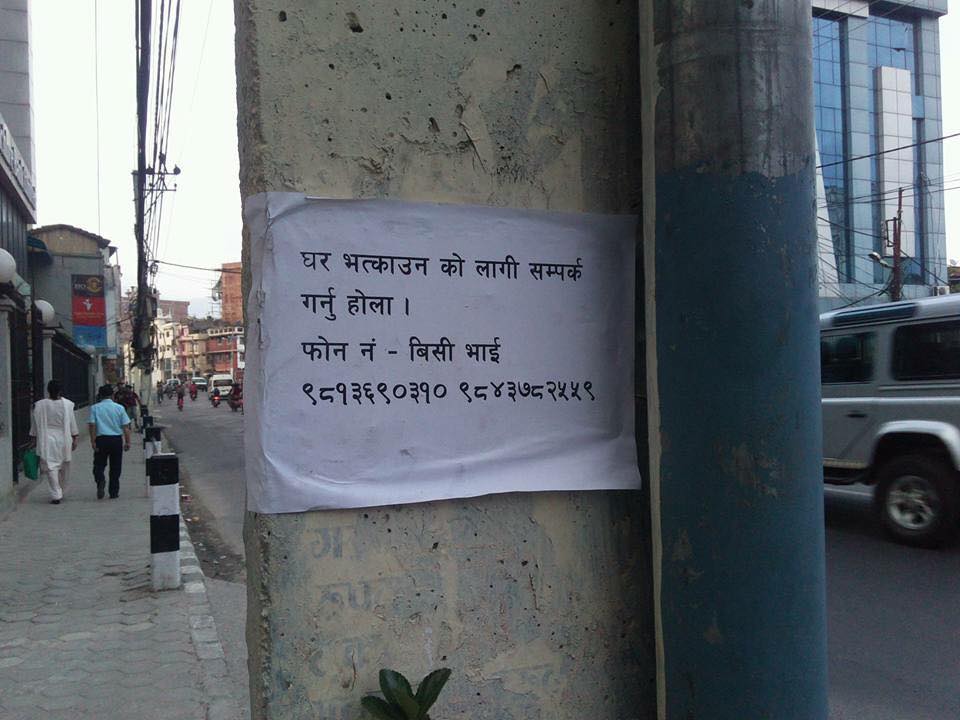 घर भत्काउन को लागी सम्पर्क
गर्नु होला ।
फोन नं - बिसी भाई
९८१३६९०३१० ९८४३७८२५५९